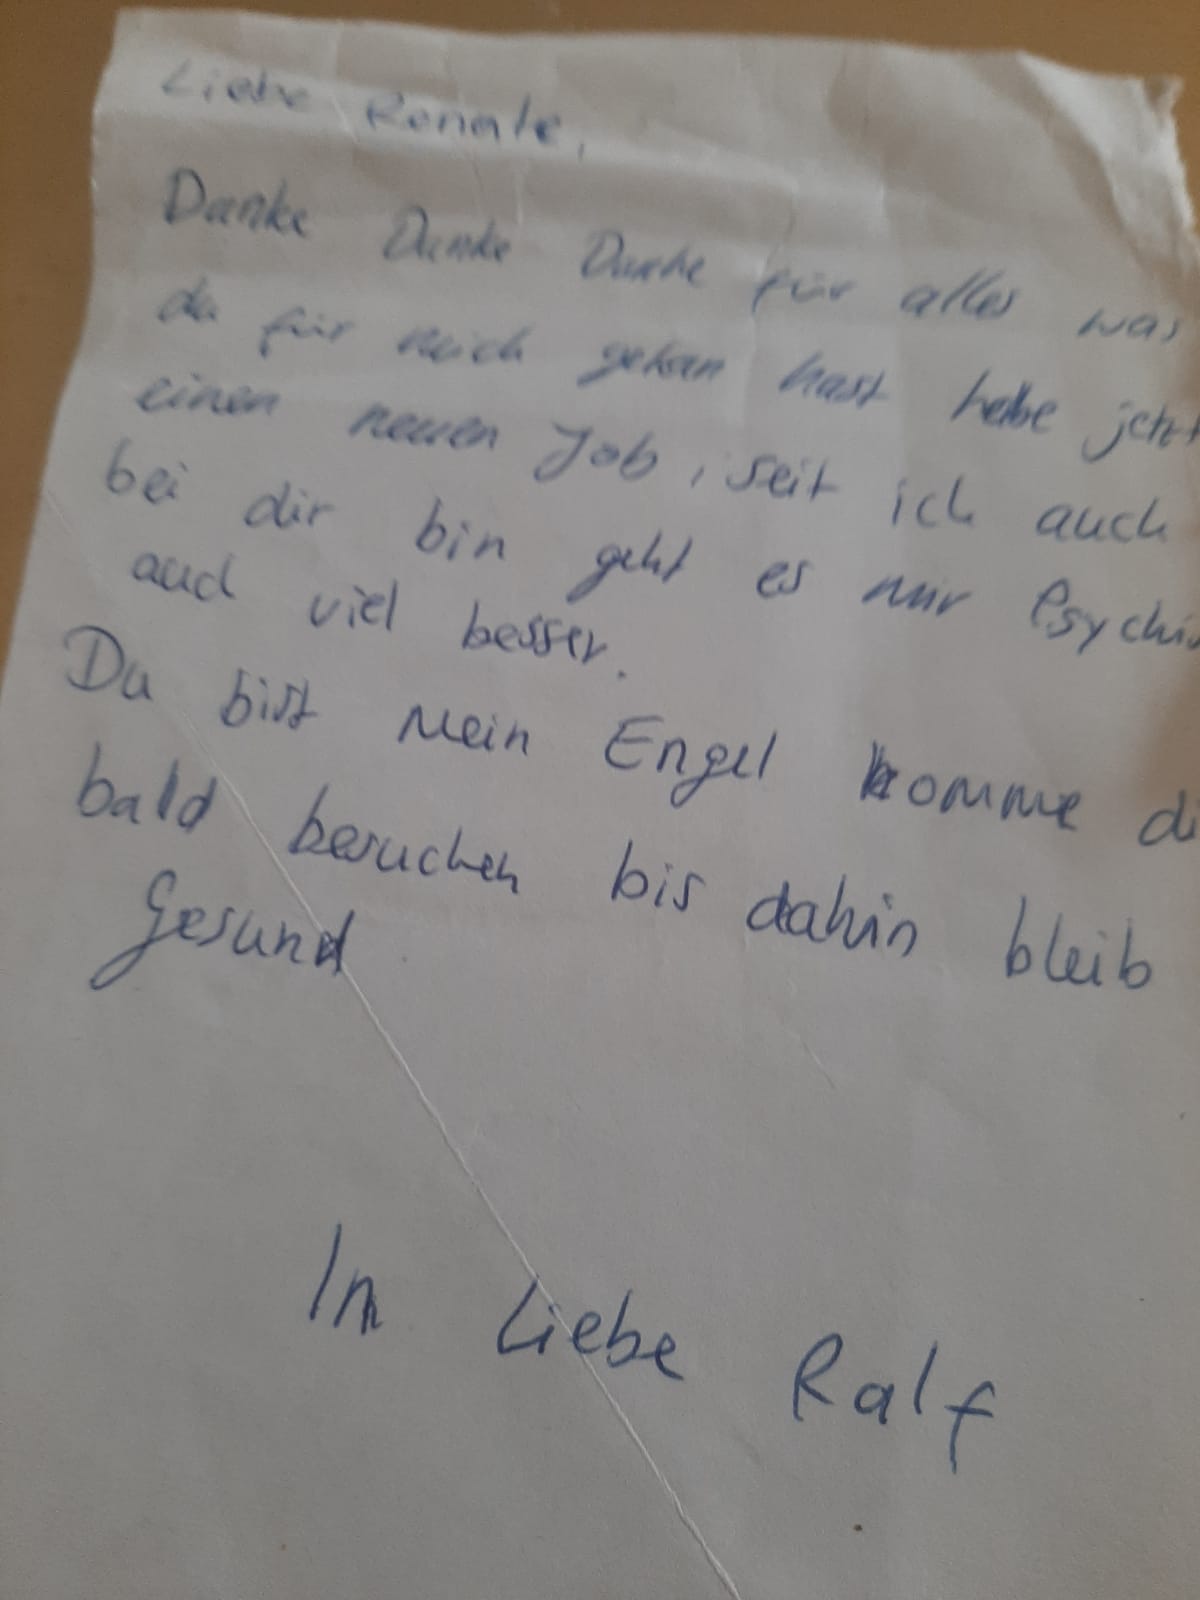 Liebe Renate,
Danke Danke Danke für alles was
du für mich getan hast habe jetzt
einen neuen Job, seit ich auch
bei dir bin geht es mir Psychis
auch viel besser.
Du bist mein Engel komme di
bald besuchen bis dahin bleib
Gesund
In Liebe Ralf